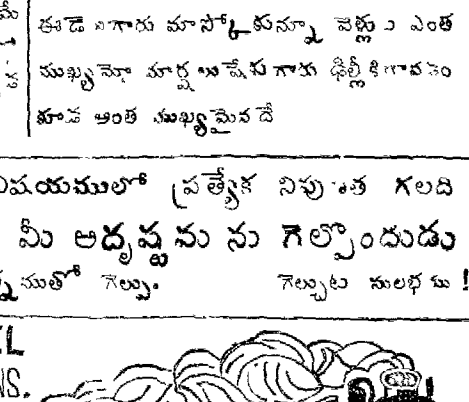 ఈడెనుగారు మాస్కోకువున్నూ వెళ్లు ఎంత
ముఖ్యమో మార్షలు గారు ఢిల్లీకి రావడం
కూడ అంత ముఖ్యమైనదే
విషయములలో ప్రత్యేక నిపుణత గలది
మీ అదృష్టమును గెల్పొందుడు
గెల్పు. గెల్చుట సులభము!
NS.